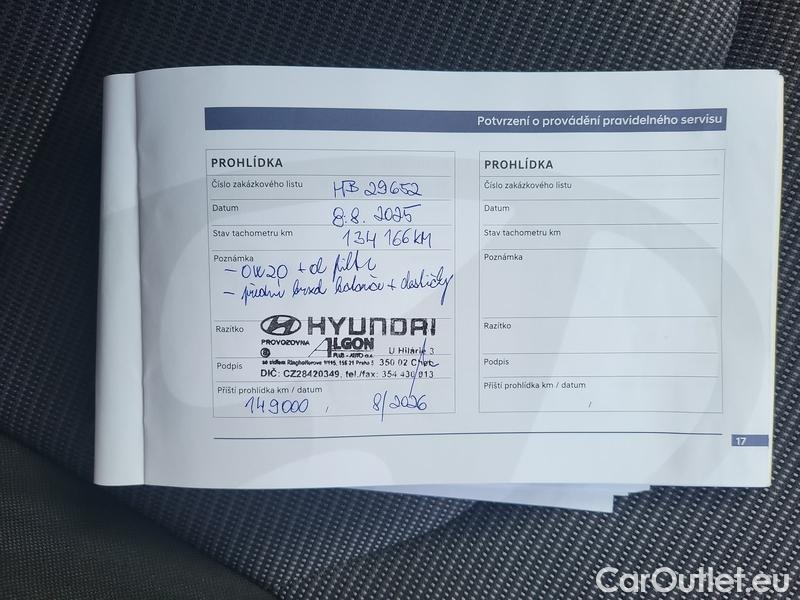 Potvrzení o provádění pravidelného servisu
PROHLÍDKA
Číslo zakázkového listu HB 29652
Datum 8.8. 2025
Stav tachometru km 134 166 KM
Poznámka
- 0W20 + ol filtr
- přední brzd kotouče + destičky
Razítko HYUNDAI
PROVOZOVNA ALGON
PLUS - AUTO a.s. U Hilarie 3
se sídlem Ringhofferova 1/115, 155 21 Praha 5 350 02 Cheb
Podpis
DIČ: CZ28420349, tel./fax: 354 430 013
Příští prohlídka km / datum
149000, 8/2026
PROHLÍDKA
Číslo zakázkového listu
Datum
Stav tachometru km
Poznámka
Razítko
Podpis
Příští prohlídka km / datum
/
17
CarOutlet.eu